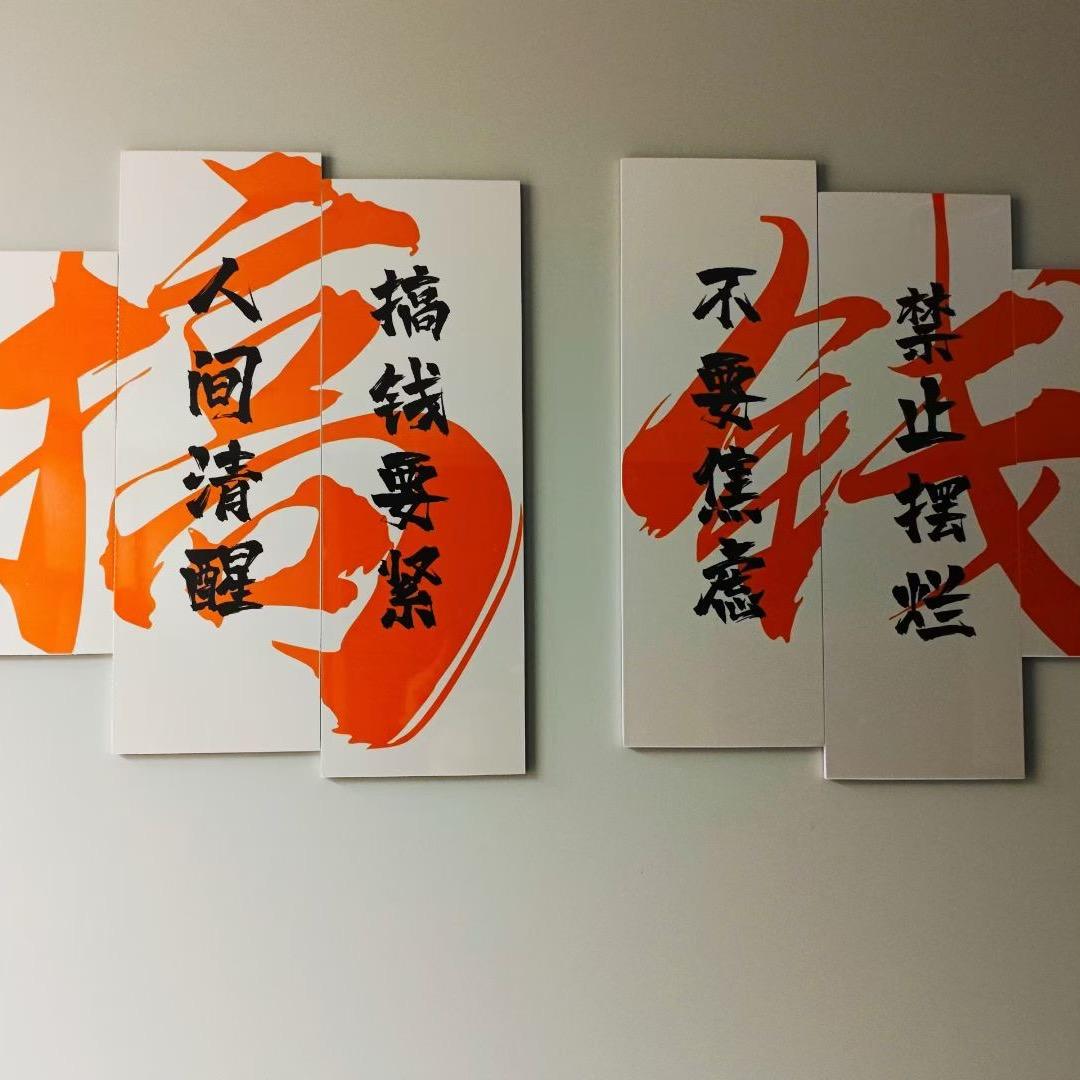 搞钱
人间清醒
搞钱要紧
不要焦虑
禁止摆烂